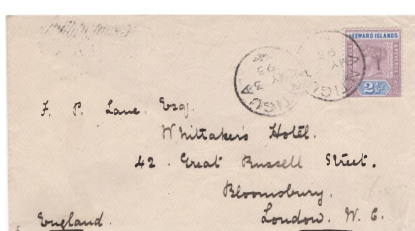 LEEWARD ISLANDS
2½
ANTIGUA
F. P. Lane Esq.
Whittaker's Hotel.
42. Great Russell Street.
Bloomsbury.
England. London. W. C.